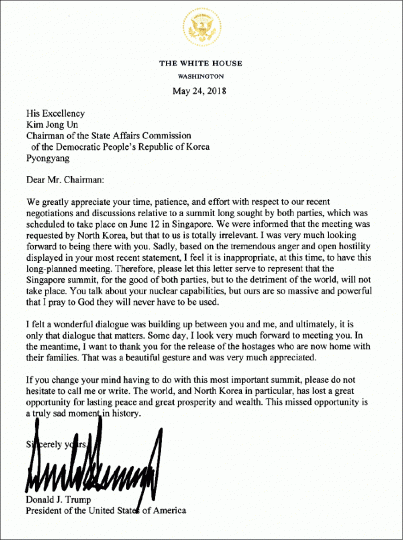 THE WHITE HOUSE
WASHINGTON
May 24, 2018
His Excellency
Kim Jong Un
Chairman of the State Affairs Commission
of the Democratic People's Republic of Korea
Pyongyang
Dear Mr. Chairman:
We greatly appreciate your time, patience, and effort with respect to our recent
negotiations and discussions relative to a summit long sought by both parties, which was
scheduled to take place on June 12 in Singapore. We were informed that the meeting was
requested by North Korea, but that to us is totally irrelevant. I was very much looking
forward to being there with you. Sadly, based on the tremendous anger and open hostility
displayed in your most recent statement, I feel it is inappropriate, at this time, to have this
long-planned meeting. Therefore, please let this letter serve to represent that the
Singapore summit, for the good of both parties, but to the detriment of the world, will not
take place. You talk about your nuclear capabilities, but ours are so massive and powerful
that I pray to God they will never have to be used.
I felt a wonderful dialogue was building up between you and me, and ultimately, it is
only that dialogue that matters. Some day, I look very much forward to meeting you. In
the meantime, I want to thank you for the release of the hostages who are now home with
their families. That was a beautiful gesture and was very much appreciated.
If you change your mind having to do with this most important summit, please do not
hesitate to call me or write. The world, and North Korea in particular, has lost a great
opportunity for lasting peace and great prosperity and wealth. This missed opportunity is
a truly sad moment in history.
Sincerely yours,
Donald J. Trump
President of the United States of America